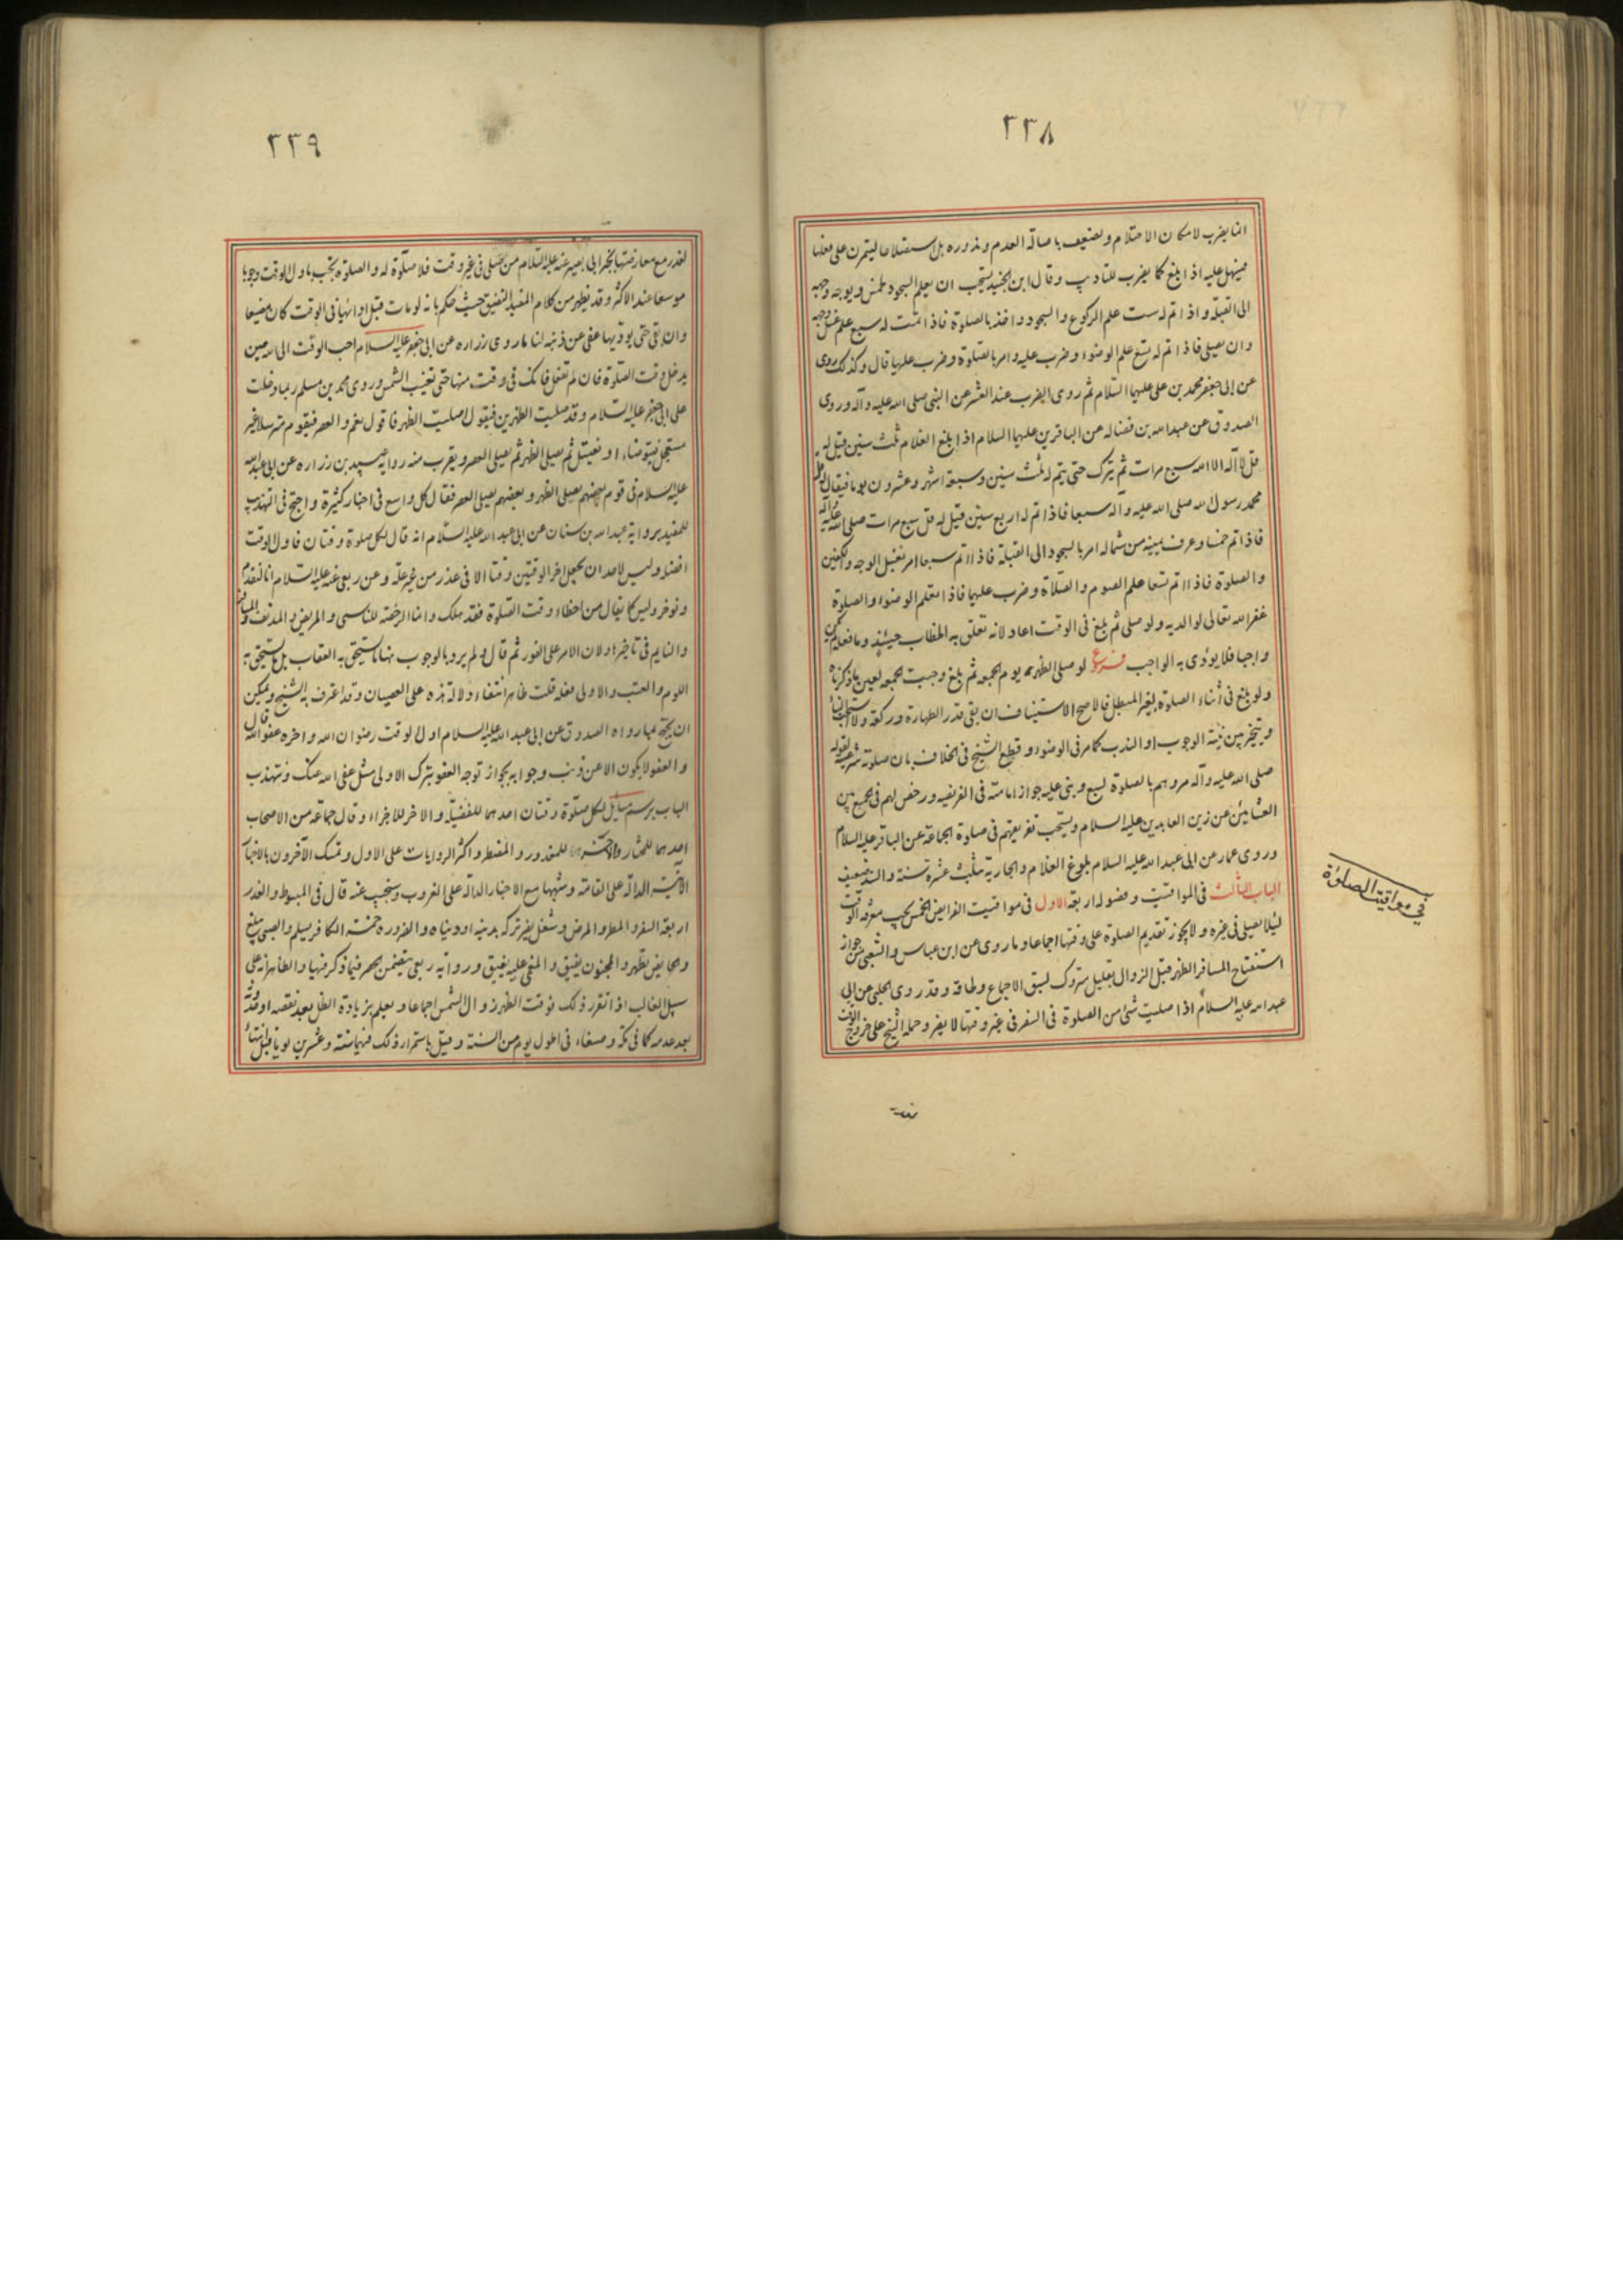 ٢٣٨
انما يضرب لامكان الاحتلام ويضعف باصالة العدم وندوره بل استصلاحا ليتمرن على فعلها
فيسهل عليه اذا بلغ كما يضرب للتأديب وقال ابن الجنيد يستحب ان يعلم السجود لخمس ويوجه وجهه
الى القبلة واذا تم له ست علم الركوع والسجود واخذ بالصلوة فاذا تمت له سبع علم غسل وجهه
وان يصلى فاذا تم له تسع علم الوضوء وضرب عليه وامر بالصلوة وضرب عليها قال وكذلك روى
عن ابى جعفر محمد بن على عليهما السلام ثم روى الضرب عند العشر عن النبى صلى الله عليه وآله وروى
الصدوق عن عبد الله بن فضاله عن الباقرين عليهما السلام اذا بلغ الغلام ثلث سنين قيل له
قل لا آله الا الله سبع مرات ثم يترك حتى يتم له ثلث سنين وسبعة اشهر وعشرون يوما فيقال له قل
محمد رسول الله صلى الله عليه وآله سبعا فاذا تم له اربع سنين قيل له قل سبع مرات صلى الله عليه وآله
فاذا تم خمسا وعرف يمينه من شماله امر بالسجود الى القبلة فاذا تم سبعا امر بغسل الوجه والكفين
والصلوة فاذا تم تسعا علم الصوم والصلاة وضرب عليها فاذا تعلم الوضوء والصلوة
غفر الله تعالى لوالديه ولو صلى ثم بلغ فى الوقت اعاد لانه تعلق به الخطاب حينئذ وما فعله لم يكن
واجبا فلا يؤدى به الواجب فرع لو صلى الظهر يوم الجمعه ثم بلغ وجبت الجمعه لعين ما ذكرناه
ولو بلغ فى أثناء الصلوة بغير المبطل فالاصح الاستيناف ان بقى قدر الطهارة وركعة والا
ويتخير بين نية الوجوب او الندب كما مر فى الوضوء وقطع الشيخ فى الخلاف بان صلوته شرعية لقوله
صلى الله عليه وآله مروهم بالصلوة لسبع وبنى عليه جواز امامته فى الفريضه ورخص لهم فى الجمع بين
العشائين عن زين العابدين عليه السلام ويستحب تفريقهم فى صلوة الجماعة عن الباقر عليه السلام
وروى عمار عن ابى عبد الله عليه السلام بلوغ الغلام والجارية بثلث عشرة سنة والسند ضعيف
الباب الثالث فى المواقيت وفصوله اربعة الاول فى مواقيت الفرايض الخمس يجب معرفة الوقت
ليلا يصلى فى غيره ولا يجوز تقديم الصلوة على وقتها اجماعا وما روى عن ابن عباس والشعبى من جواز
استفتاح المسافر الظهر قبل الزوال بقليل متروك لسبق الاجماع ولحاقه وقد روى الحلبى عن ابى
عبد الله عليه السلام اذا صليت شئ من الصلوة فى السفر فى غير وقتها لا يضر وحمله الشيخ على خروج الوقت
فى مواقيت الصلوة
٢٣٩
لعذر مع معارضتها بخبر ابى بصير عنه عليه السلام من صلى فى غير وقت فلا صلوة له والصلوة يجب باول الوقت وجوبا
موسعا عند الاكثر وقد يظهر من كلام المفيد التضيق حيث حكم بانه لو مات قبل ادائها فى الوقت كان مضيعا
وان بقى حتى يوديها عفى عن ذنبه لنا ما روى زراره عن ابى جعفر عليه السلام احب الوقت الى الله حين
يدخل وقت الصلوة فان لم تفعل فانك فى وقت منها حتى تغيب الشمس وروى محمد بن مسلم ربما دخلت
على ابى جعفر عليه السلام وقد صليت الظهرين فيقول اصليت الظهر فاقول نعم والعصر فيقوم مترسلا غير
مستعجل فيتوضاء او يغتسل ثم يصلى الظهر ثم يصلى العصر ويقرب منه رواية عبيد بن زراره عن ابى عبد الله
عليه السلام فى قوم بعضهم يصلى الظهر وبعضهم يصلى العصر فقال كل واسع فى اخبار كثيرة واحتج فى التهذيب
للمفيد برواية عبد الله بن سنان عن ابى عبد الله عليه السلام انه قال لكل صلوة وقتان فاول الوقت
افضله وليس لاحد ان يجعل اخر الوقتين وقتا الا فى عذر من غير علة وعن ربعى عنه عليه السلام انا لنقدم
ونوخر وليس كما يقال من اخطاء وقت الصلوة فقد هلك وانما الرخصة للناسى والمريض والمدنف والمسافر
والنايم فى تاخيرها ولان الامر على الفور ثم قال ولم يرد بالوجوب هنا ما يستحق به العقاب بل ما يستحق به
اللوم والعتب والاولى فعله قلت ظاهر انتفاء دلالة هذه على العصيان وقد اعترف به الشيخ ويمكن
ان يحتج بما رواه الصدوق عن ابى عبد الله عليه السلام اول الوقت رضوان الله واخره عفو الله قال
والعفو لا يكون الا عن ذنب وجوابه بجواز توجه العفو بترك الاولى مثل عفى الله عنك ونتهذب
الباب برسم مسايل لكل صلوة وقتان احدهما للفضيلة والاخر للاجزاء وقال جماعة من الاصحاب
احدهما للمختار والاخر للمعذور والمضطر واكثر الروايات على الاول وتمسك الآخرون بالاخبار
الآتية الدالة على القامة وشبهها مع الاخبار الدالة على الغروب وسنجيب عنه قال فى المبسوط والعذر
اربعة السفر والمطر والمرض وشغل يضر تركه بدينه او دنياه والضرورة خمسة الكافر يسلم والصبى يبلغ
والحايض يطهر والمجنون يفيق والمغمى عليه يفيق ورواية ربعى يتضمن فيما ذكر فيها والظاهر انه على
سبيل الغالب اذا تقرر ذلك فوقت الظهر زوال الشمس اجماعا ويعلم بزيادة الظل بعد نقصه او حدوثه
بعد عدمه كما فى مكة وصنعاء فى اطول يوم من السنة وقيل باستمرار ذلك فيهما ستة وعشرين يوما قبل انتهاء